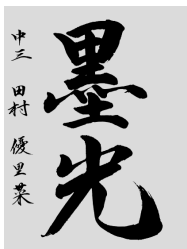 墨光
中三 田村 優里菜